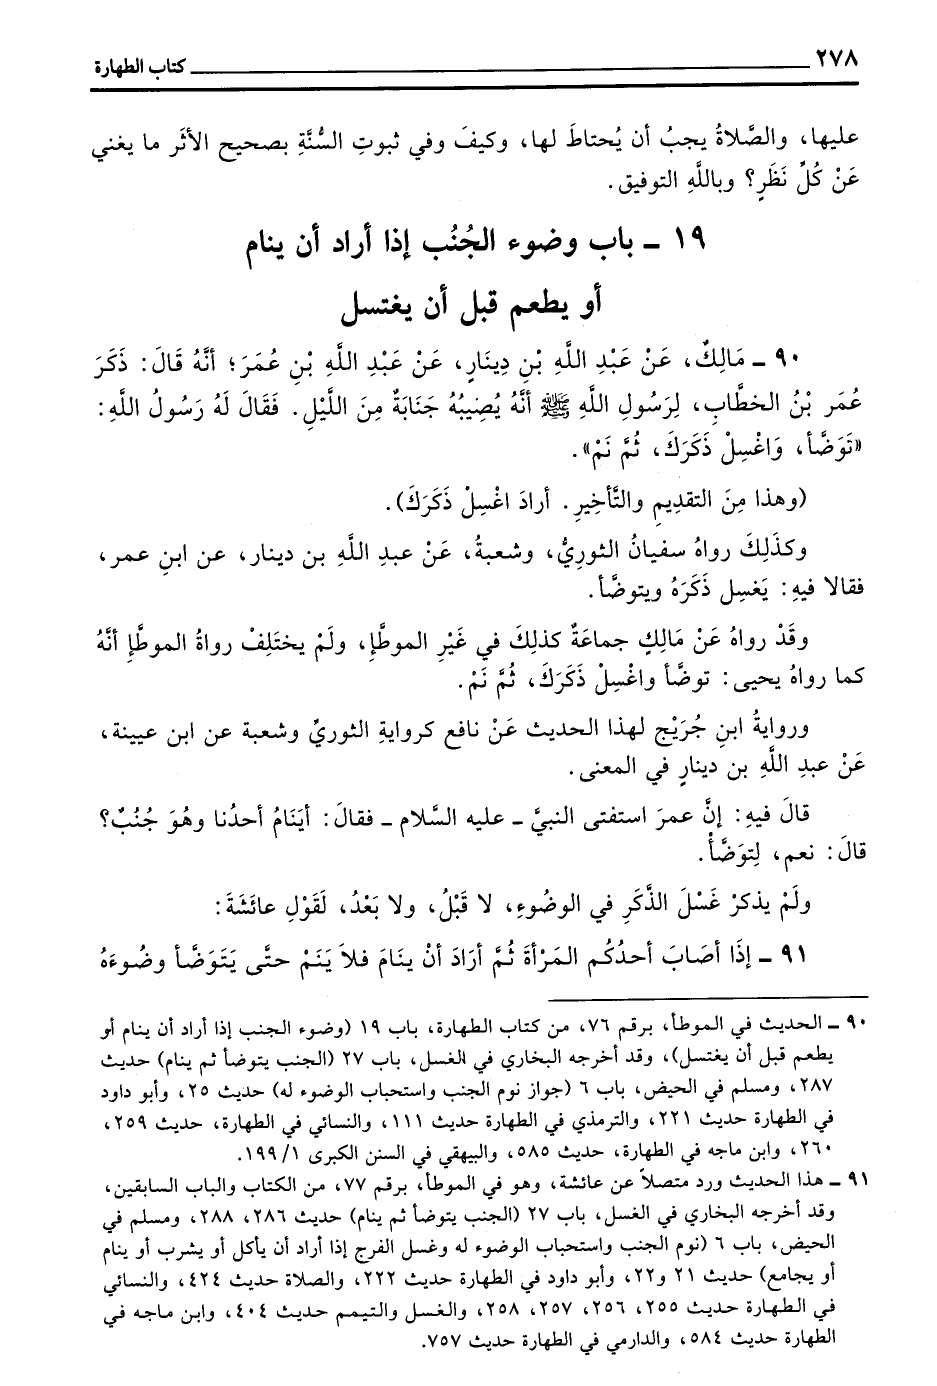 ٢٧٨ كتاب الطهارة
عليها، والصَّلاةُ يجبُ أن يُحتاطَ لها، وكيفَ وفي ثبوتِ السُّنَّةِ بصحيح الأثَر ما يغني
عَنْ كُلِّ نَظَرٍ؟ وباللَّهِ التوفيق.
١٩ ـ باب وضوء الجُنُب إذا أراد أن ينام
أو يطعم قبل أن يغتسل
٩٠ ـ مَالِكٌ، عَنْ عَبْدِ اللَّهِ بْنِ دِينَارٍ، عَنْ عَبْدِ اللَّهِ بْنِ عُمَرَ؛ أنَّهُ قَالَ: ذَكَرَ
عُمَر بْنُ الخطَّابِ، لِرَسُولِ اللَّهِ ﷺ أنَّهُ يُصِيبُهُ جَنَابَةٌ مِنَ اللَّيْلِ. فَقَالَ لَهُ رَسُولُ اللَّهِ:
«تَوَضَّأ، وَاغْسِلْ ذَكَرَكَ، ثُمَّ نَمْ».
(وهذا مِنَ التقديمِ والتَّأخِيرِ. أرادَ اغْسِلْ ذَكَرَكَ).
وكذَلِكَ رواهُ سفيانُ الثوريُّ، وشعبةُ، عَنْ عبدِ اللَّهِ بن دينار، عن ابنِ عمر،
فقالا فيهِ: يَغسِل ذَكَرَهُ ويتوضَّأ.
وقَدْ رواهُ عَنْ مَالِكٍ جماعَةٌ كذلِكَ في غَيْرِ الموطَّإ، ولَمْ يختَلِفْ رواةُ الموطَّإ أنَّهُ
كما رواهُ يحيى: توضَّأ واغْسِلْ ذَكَرَكَ، ثُمَّ نَمْ.
وروايةُ ابنِ جُرَيْج لهذا الحديث عَنْ نافع كروايةِ الثوريِّ وشعبة عن ابن عيينة،
عَنْ عبدِ اللَّهِ بن دينارٍ في المعنى.
قالَ فيهِ: إنَّ عمرَ استفتى النبيَّ ـ عليه السَّلام ـ فقالَ: أيَنَامُ أحدُنا وهُوَ جُنُبٌ؟
قالَ: نعم، لِتوَضَّأْ.
ولَمْ يذكرْ غَسْلَ الذَّكَرِ في الوضُوءِ، لا قَبْلُ، ولا بَعْدُ، لَقَوْلِ عائشَةَ:
٩١ ـ إذَا أصَابَ أحدُكُم المَرْأةَ ثُمَّ أرَادَ أنْ ينَامَ فلاَ يَنَمْ حتَّى يَتَوَضَّأ وضُوءَهُ
٩٠ ـ الحديث في الموطأ، برقم ٧٦، من كتاب الطهارة، باب ١٩ (وضوء الجنب إذا أراد أن ينام أو
يطعم قبل أن يغتسل)، وقد أخرجه البخاري في الغسل، باب ٢٧ (الجنب يتوضأ ثم ينام) حديث
٢٨٧، ومسلم في الحيض، باب ٦ (جواز نوم الجنب واستحباب الوضوء له) حديث ٢٥، وأبو داود
في الطهارة حديث ٢٢١، والترمذي في الطهارة حديث ١١١، والنسائي في الطهارة، حديث ٢٥٩،
٢٦٠، وابن ماجه في الطهارة، حديث ٥٨٥، والبيهقي في السنن الكبرى ١/ ١٩٩.
٩١ ـ هذا الحديث ورد متصلاً عن عائشة، وهو في الموطأ، برقم ٧٧، من الكتاب والباب السابقين،
وقد أخرجه البخاري في الغسل، باب ٢٧ (الجنب يتوضأ ثم ينام) حديث ٢٨٦، ٢٨٨، ومسلم في
الحيض، باب ٦ (نوم الجنب واستحباب الوضوء له وغسل الفرج إذا أراد أن يأكل أو يشرب أو ينام
أو يجامع) حديث ٢١ و٢٢، وأبو داود في الطهارة حديث ٢٢٢، والصلاة حديث ٤٢٤، والنسائي
في الطهارة حديث ٢٥٥، ٢٥٦، ٢٥٧، ٢٥٨، والغسل والتيمم حديث ٤٠٤، وابن ماجه في
الطهارة حديث ٥٨٤، والدارمي في الطهارة حديث ٧٥٧.